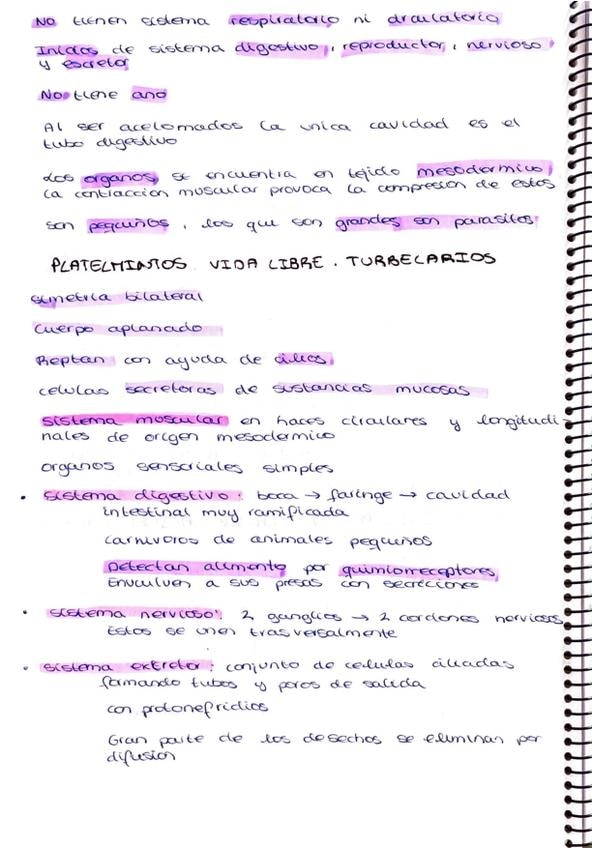 NO tienen sistema respiratorio ni circulatorio
Inicios de sistema digestivo, reproductor, nervioso
y escretor
No tiene ano
Al ser acelomados la unica cavidad es el
tubo digestivo
Los organos, se encuentra en tejido mesodermico,
la contraccion muscular provoca la compresion de estos
son pequeños, los que son grandes son parasitos
PLATELMINTOS VIDA LIBRE. TURBELARIOS
simetria bilateral
Cuerpo aplanado
Reptan con ayuda de cilios
celulas secretoras de sustancias mucosas
sistema muscular en haces circulares y longitudi-
nales de origen mesodermico
organos sensoriales simples
• sistema digestivo: boca → faringe → cavidad
intestinal muy ramificada
carnivoros de animales pequeños
Detectan alimento por quimiorreceptores,
Envuelven a sus presas con secreciones
• sistema nervioso: 2 ganglios → 2 cordones nerviosos
Estos se unen trasversalmente
• sistema extretor: conjunto de celulas ciliadas
formando tubos y poros de salida
con protonefridios
Gran parte de los desechos se eliminan por
difusion